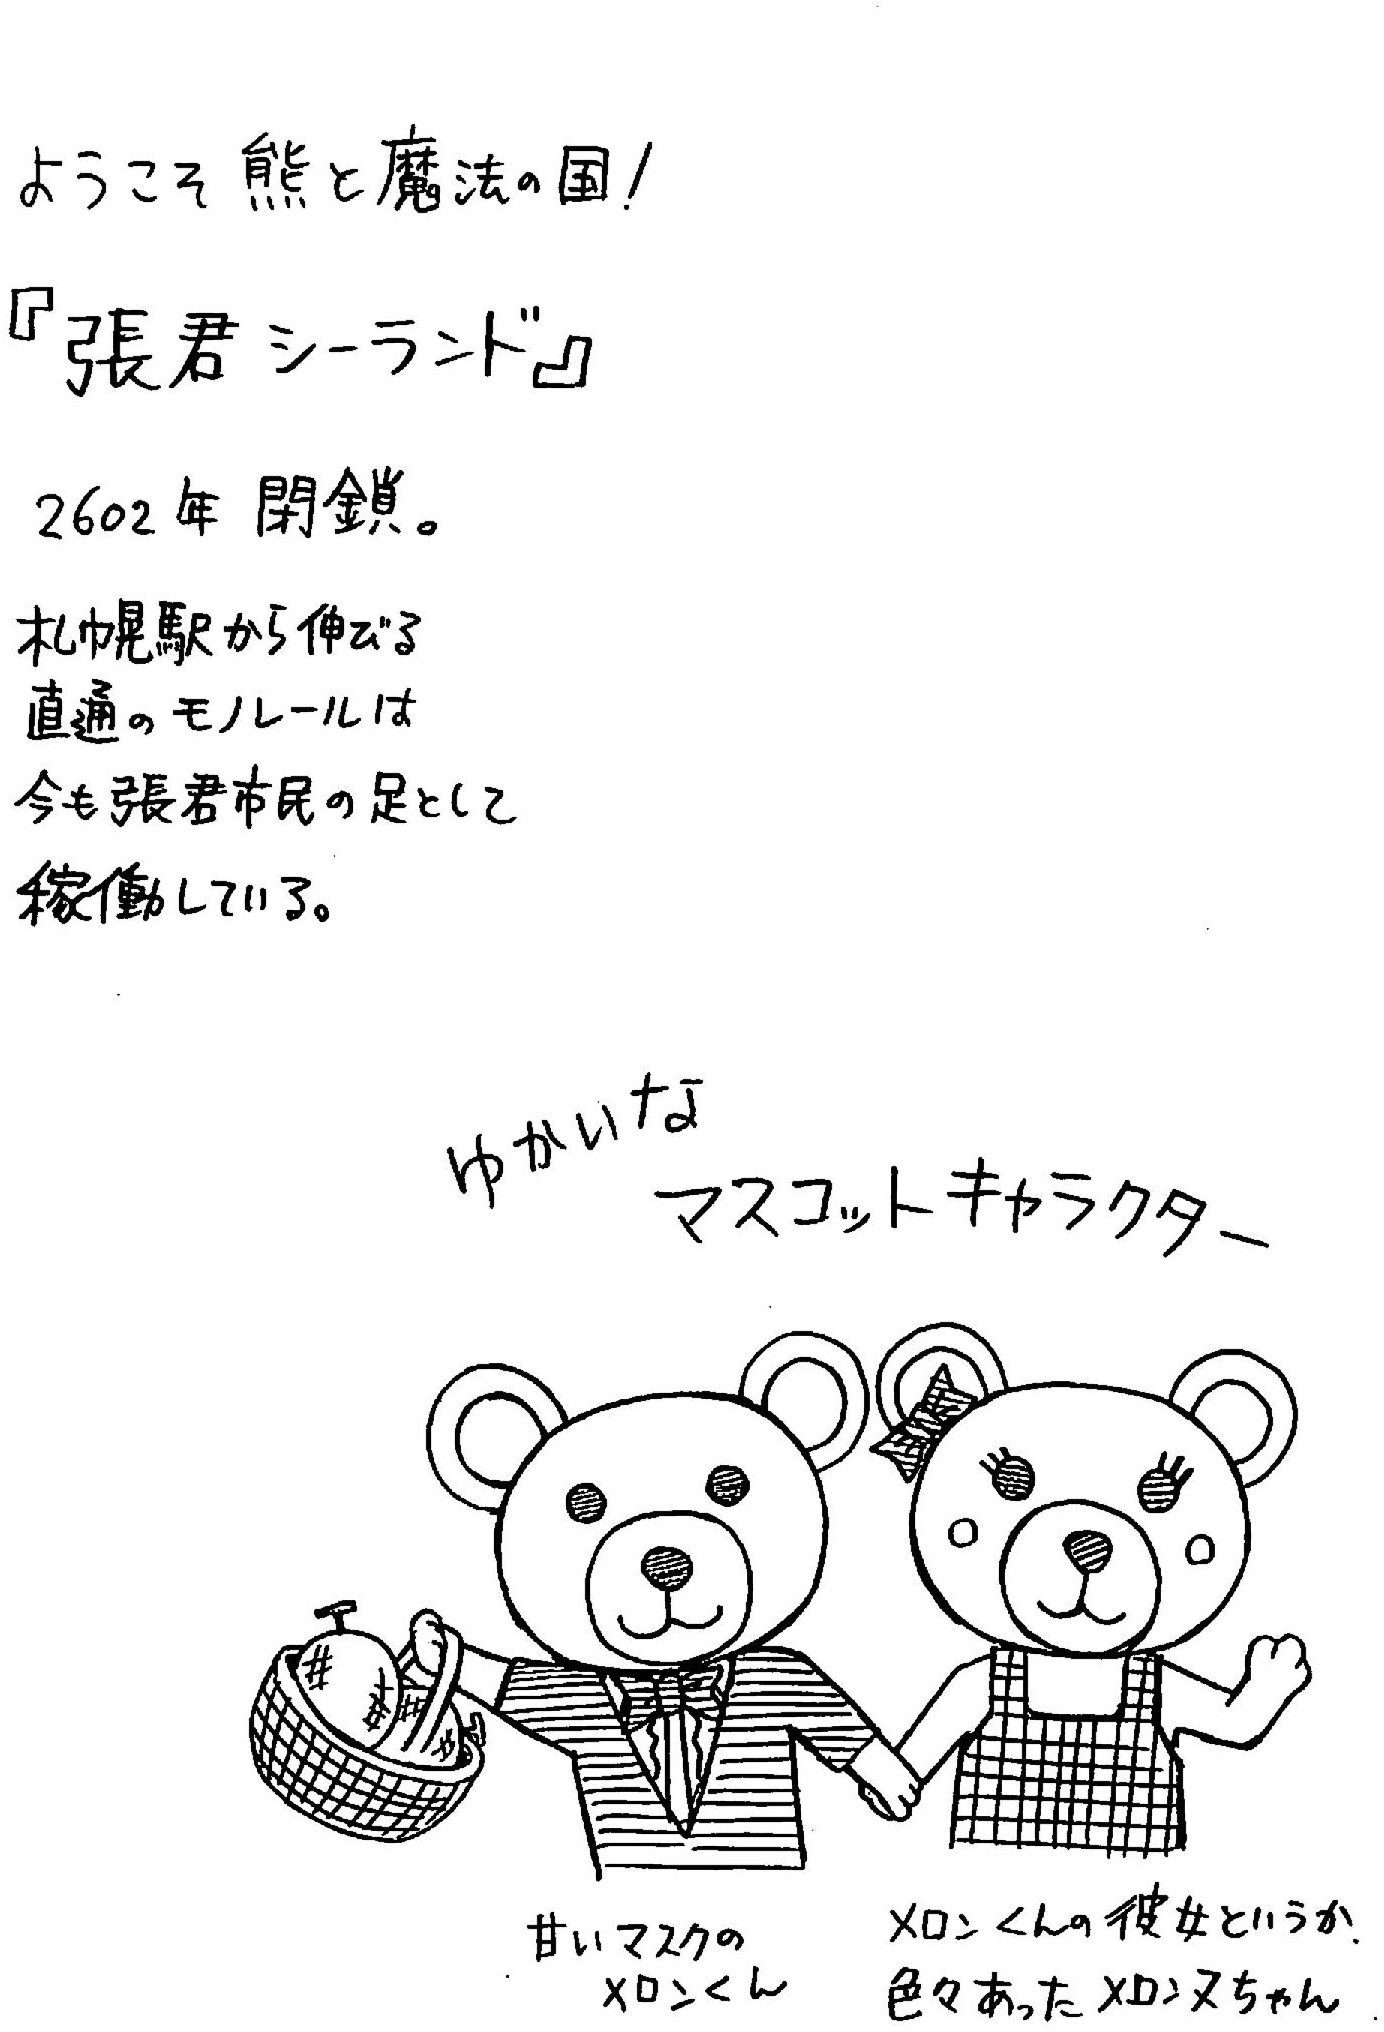 ようこそ 熊と魔法の国!
『張君シーランド』
2602年 閉鎖。
札幌駅から伸びる
直通のモノレールは
今も張君市民の足として
稼働している。
ゆかいな
マスコットキャラクター
甘いマスクの
メロンくん
メロンくんの彼女というか、
色々あったメロンヌちゃん